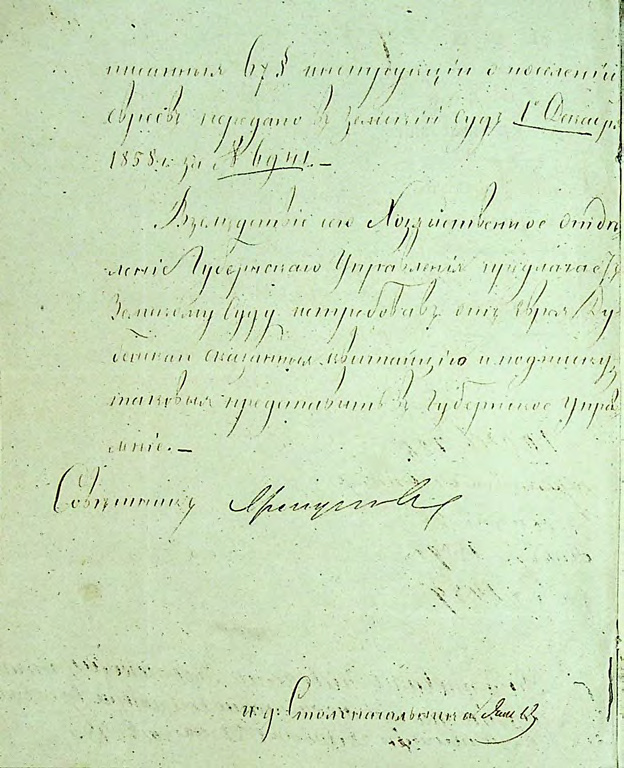 писанныя 67 § инструкціи о поселеніи
евреевъ передано въ Земскій Судъ 1º Декабр.
1858 г. за №
Вслѣдствіе сего Хозяйственное отдѣ
леніе Губернскаго Управленія предлагаетъ
Земскому Суду истребовать отъ еврея
сказанныя квитанцію и подписку,
таковыя представить въ Губернское Управ
леніе.
Совѣтникъ
и. д. Столоначальника